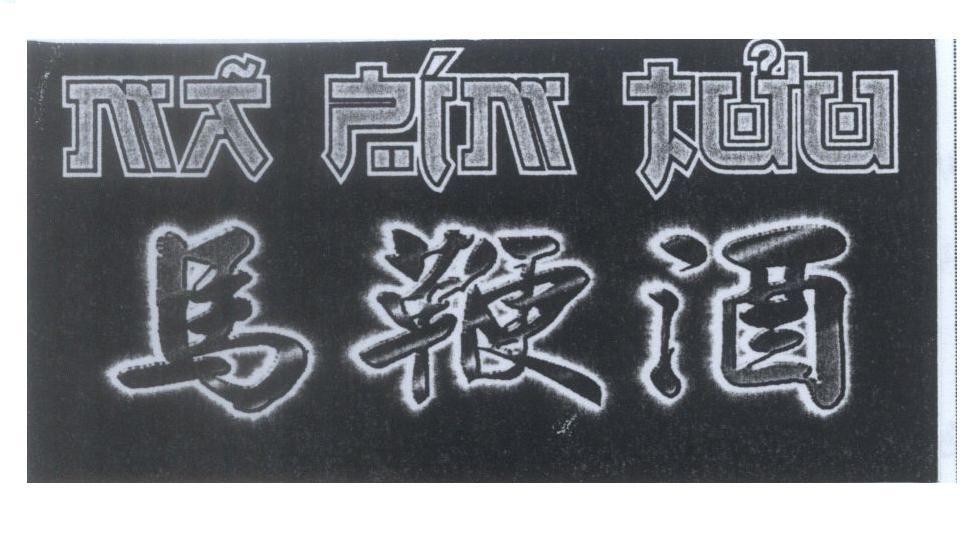 MÃ PÍM TỬU
馬鞭酒